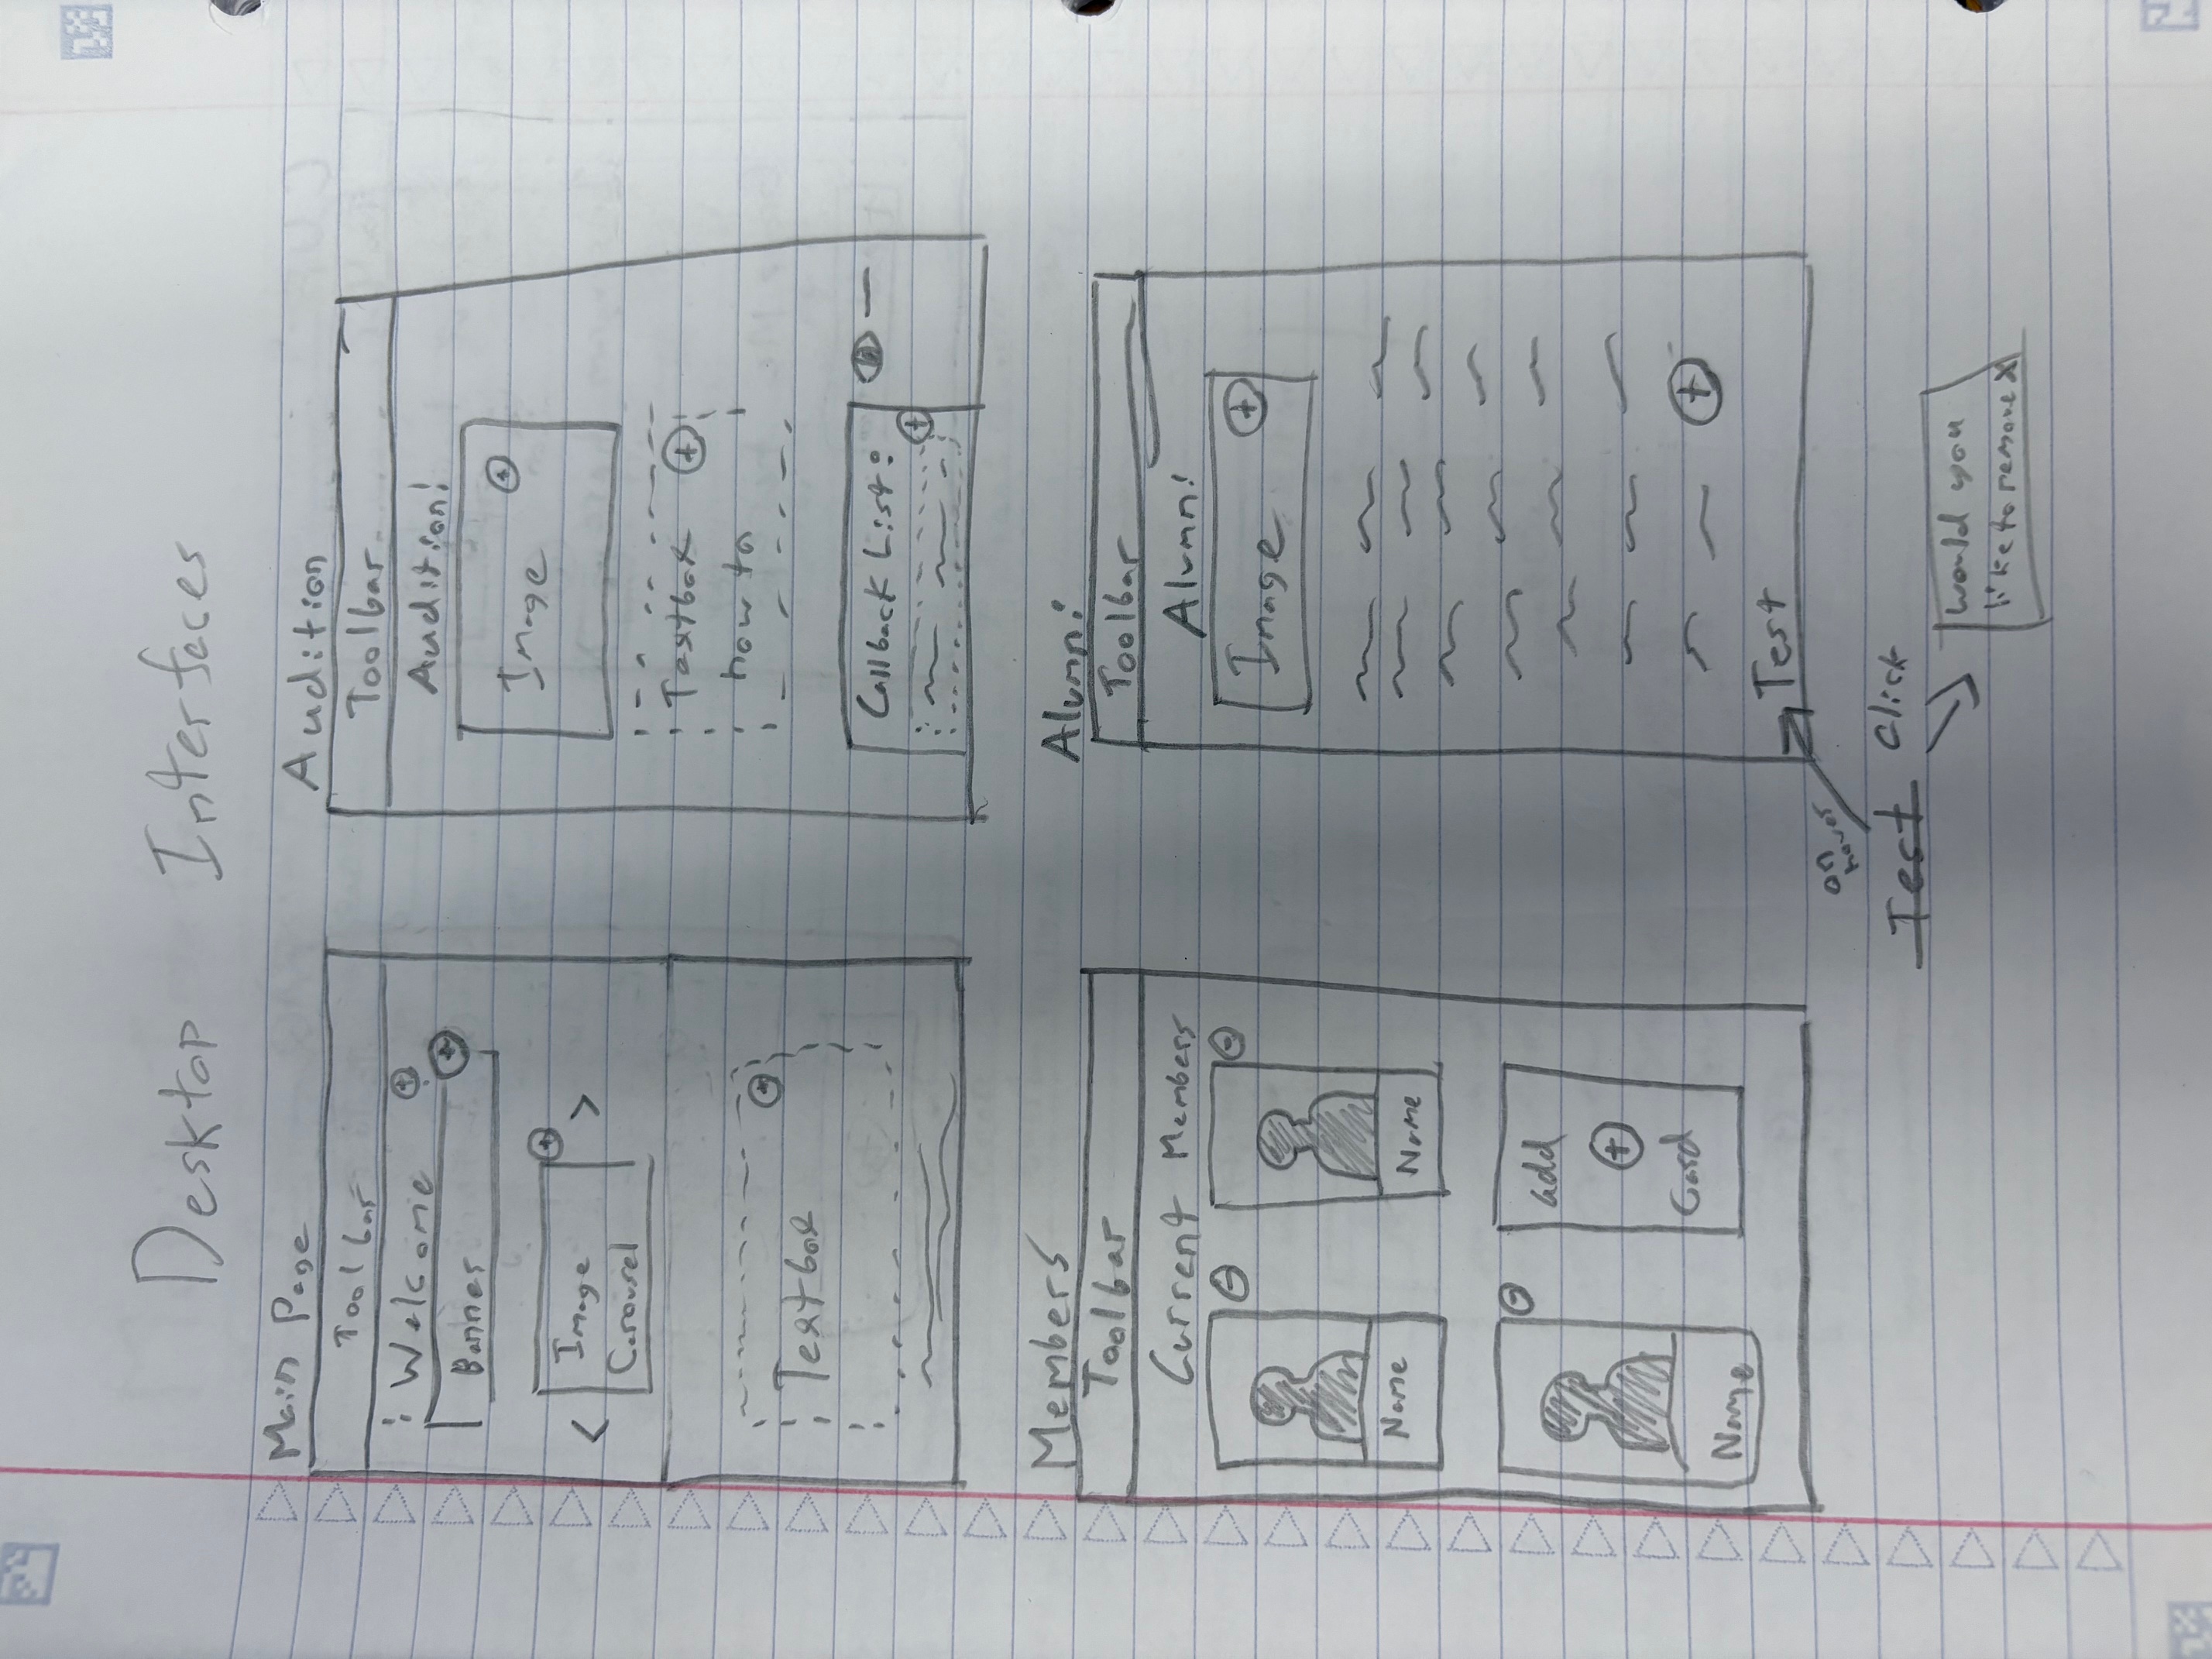 Desktop Interfaces
Main Page
Toolbar
Welcome
Banner
<
Image
Carousel
>
Textbox
Audition
Toolbar
Audition!
Image
Textbox
how to
Callback List:
Members
Toolbar
Current Members
Name
Name
Name
add
Card
Alumni
Toolbar
Alumni
Image
Test
on
hover
Test
Click
Would you
like to remove X